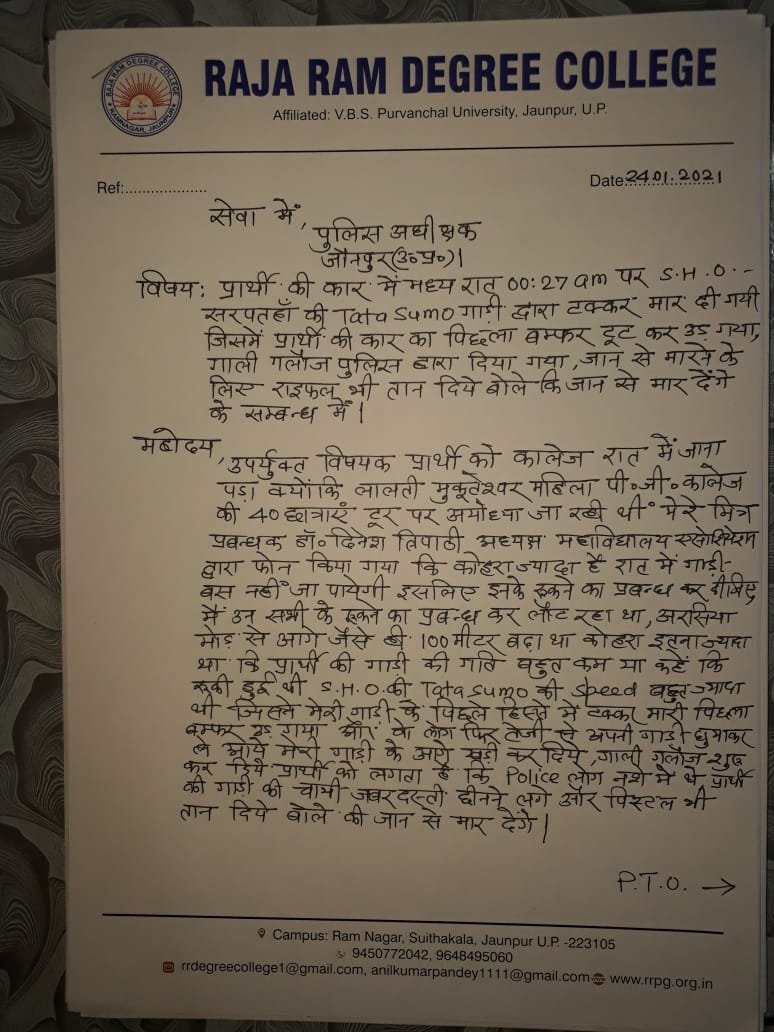 RAJA RAM DEGREE COLLEGE
RAJA RAM DEGREE COLLEGE
RAMNAGAR, JAUNPUR
Affiliated: V.B.S. Purvanchal University, Jaunpur, U.P.
Ref:....................
Date 24.01.2021
सेवा में,
पुलिस अधीक्षक
जौनपुर(उ०प्र०)।
विषय: प्रार्थी की कार में मध्य रात 00:27 am पर S.H.O.-
सरपतहाँ की Tata Sumo गाड़ी द्वारा टक्कर मार दी गयी
जिसमें प्रार्थी की कार का पिछला बम्फर टूट कर उड़ गया,
गाली गलौज पुलिस द्वारा दिया गया, जान से मारने के
लिए राइफल भी तान दिये बोले कि जान से मार देंगे
के सम्बन्ध में।
महोदय,
उपर्युक्त विषयक प्रार्थी को कालेज रात में जाना
पड़ा क्योंकि लालती मुक्तेश्वर महिला पी०जी० कालेज
की 40 छात्राएं टूर पर अयोध्या जा रही थीं मेरे मित्र
प्रबन्धक डॉ० दिनेश तिपाठी अध्यक्ष महाविद्यालय एसोसियेशन
द्वारा फोन किया गया कि कोहरा ज्यादा है रात में गाड़ी-
बस नहीं जा पायेगी इसलिए इनके रूकने का प्रबन्ध कर दीजिए
मैं उन सभी के रूकने का प्रबन्ध कर लौट रहा था, अरसिया
मोड़ से आगे जैसे ही 100 मीटर बढ़ा था कोहरा इतना ज्यादा
था कि प्रार्थी की गाड़ी की गति बहुत कम या कहें कि
रूकी हुई थी S.H.O. की Tata Sumo की Speed बहुत ज्यादा
थी जिसने मेरी गाड़ी के पिछले हिस्से में टक्कर मारी पिछला
बम्फर उड़ गया और वे लोग फिर तेजी से अपनी गाड़ी घुमाकर
ले आये मेरी गाड़ी के आगे खड़ी कर दिये, गाली गलौज शुरू
कर दिये प्रार्थी को लगता है कि Police लोग नशे में थे प्रार्थी
की गाड़ी की चाभी जबरदस्ती छीनने लगे और पिस्टल भी
तान दिये बोले की जान से मार देंगे।
P.T.O. →
Campus: Ram Nagar, Suithakala, Jaunpur U.P. -223105
9450772042, 9648495060
rrdegreecollege1@gmail.com, anilkumarpandey1111@gmail.com www.rrpg.org.in